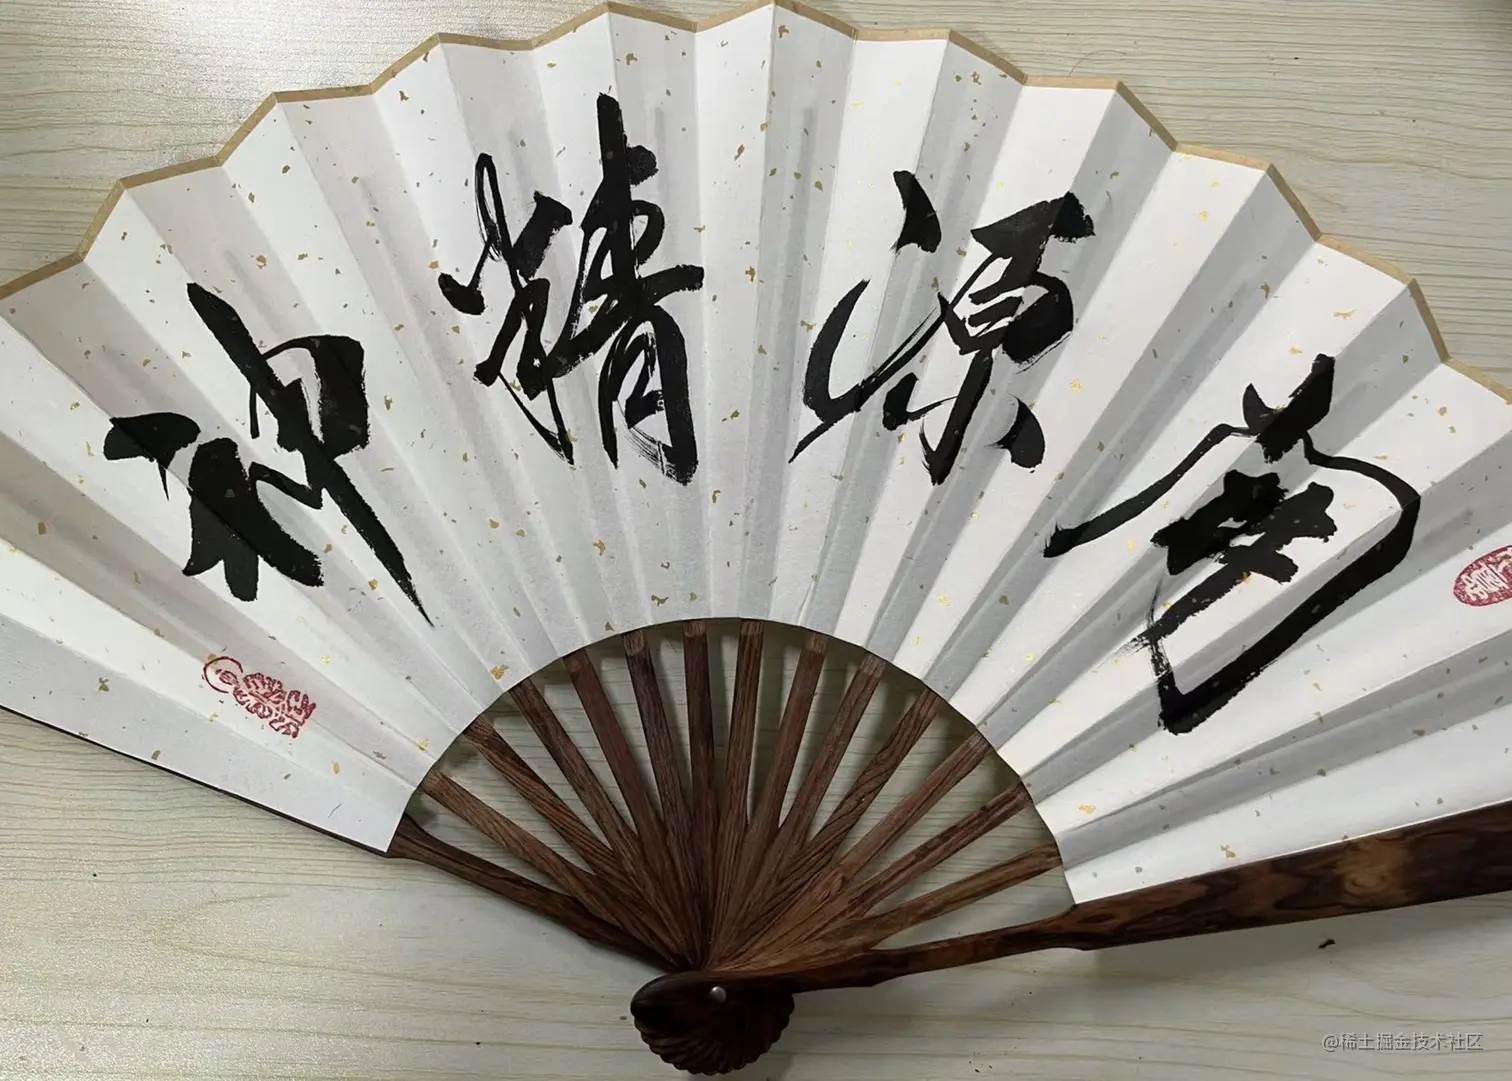 南源精神
@稀土掘金技术社区